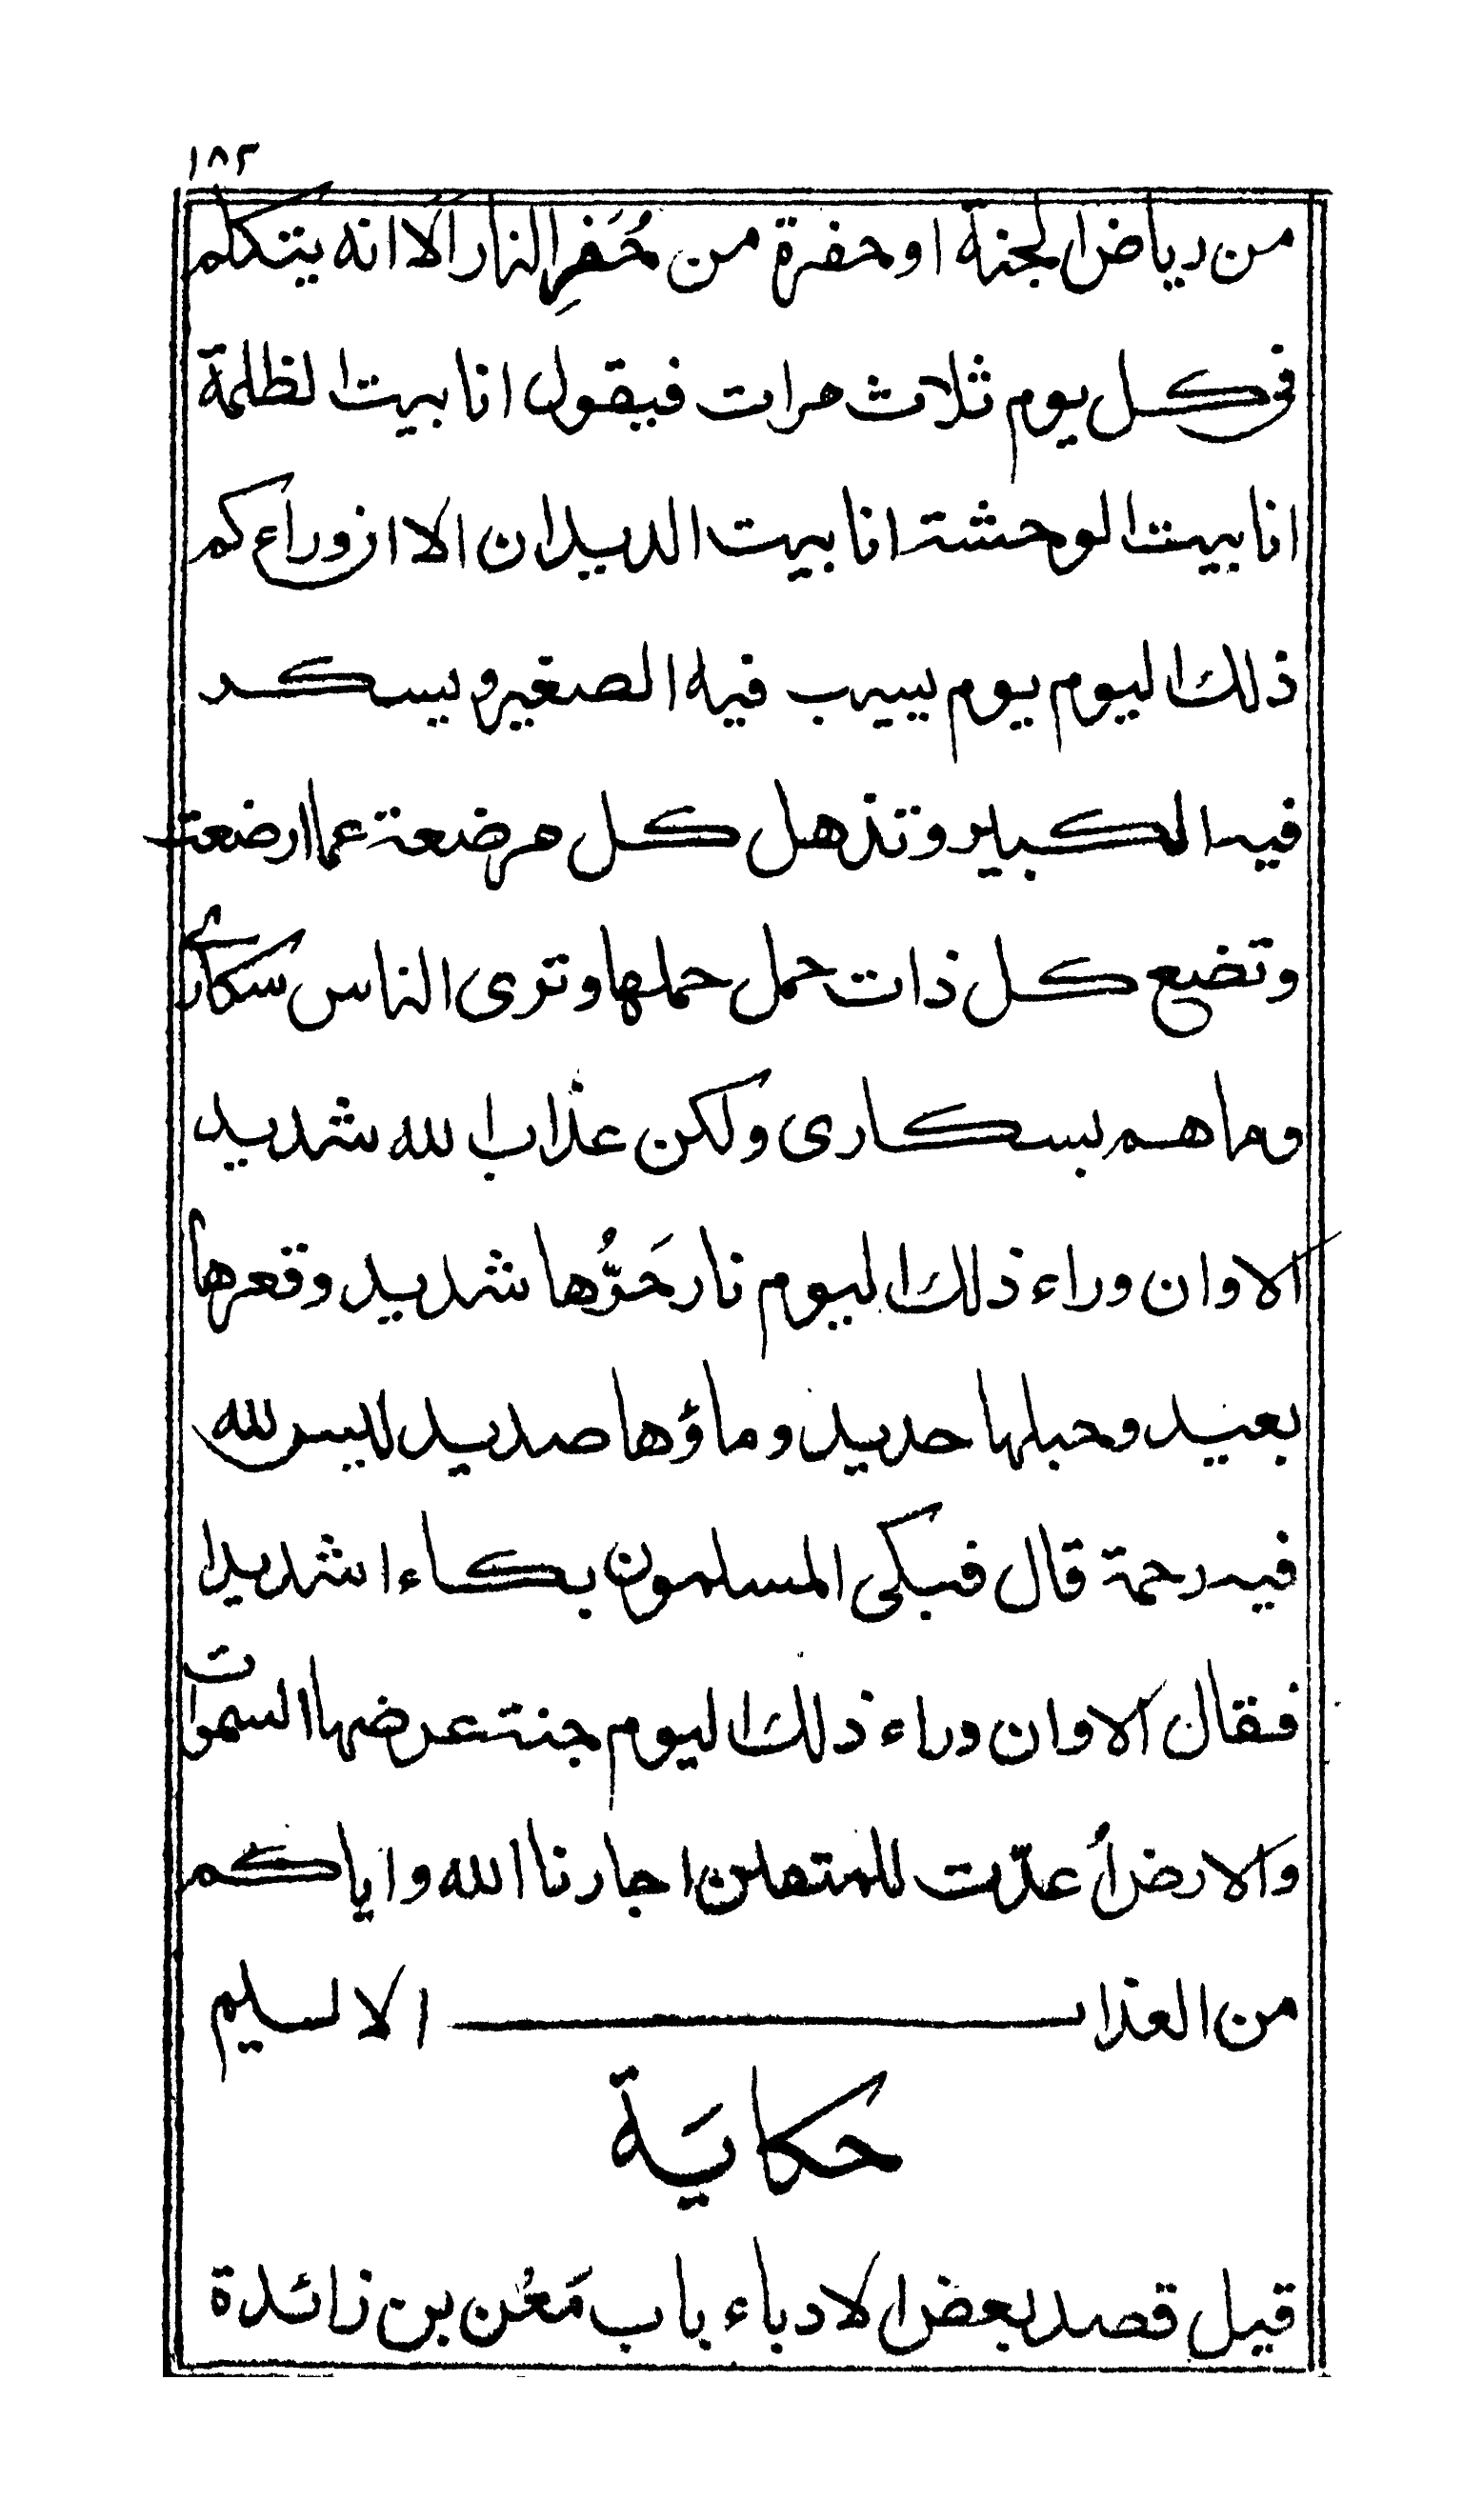 ١٨٢
من رياض الجنة او حفرة من حُفَرِ النار اَلا انه يتكلم
فى كل يوم ثلاث مرات فيقول انا بيت الظلمة
انا بيت الوحشة انا بيت الديدان الا ان وراءكم
ذلك اليوم يوم يشيب فيه الصغير و يسكر
فيه الكبير و تذهل كل مرضعة عما ارضعت
و تضع كل ذات حمل حملها و ترى الناس سُكارىٰ
وما هم بسكارى ولكن عذاب الله شديد
الا وان وراء ذلك اليوم نار حَرُّها شديد وقعرها
بعيد و حبلها حديد و ماؤها صديد ليس لله
فيه رحمة قال فبكى المسلمون بكاء اشديدا
فقال الا وان وراء ذلك اليوم جنة عرضها السموات
والارض اُعدّت للمتقين اجارنا الله و اياكم
من العذاب الاليم
حَكايَة
قيل قصد بعض الادباء باب مَعْن بن زائدة